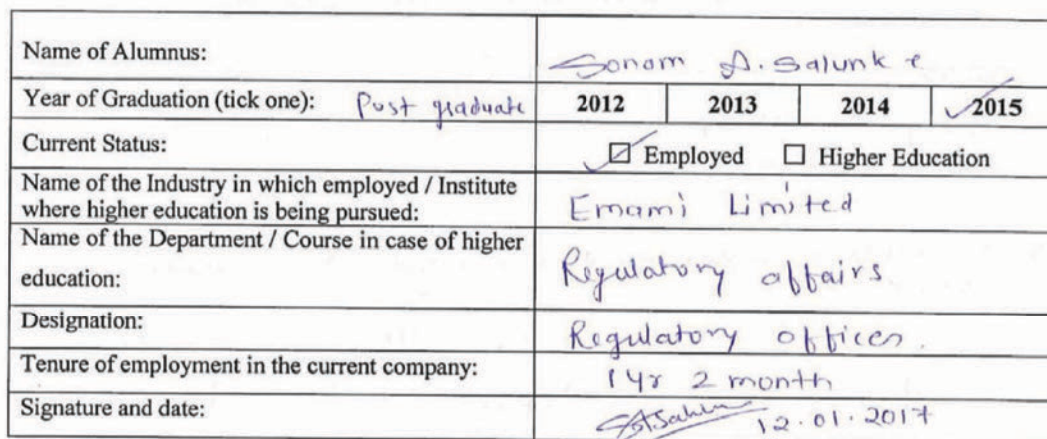 Name of Alumnus: Sonam A. Salunke
Year of Graduation (tick one): Post graduate 2012 2013 2014 2015
Current Status: Employed Higher Education
Name of the Industry in which employed / Institute
where higher education is being pursued: Emami Limited
Name of the Department / Course in case of higher
education: Regulatory affairs
Designation: Regulatory officer.
Tenure of employment in the current company: 1 yr 2 month
Signature and date: 12.01.2017